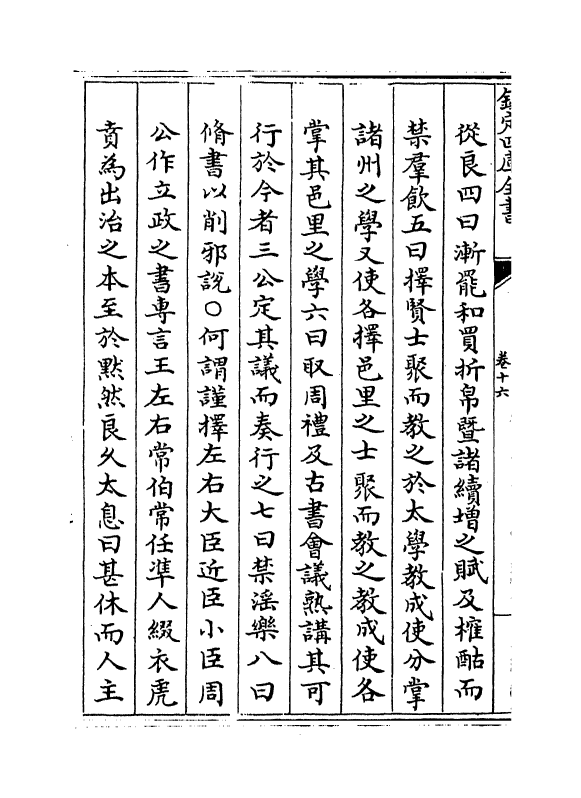 欽定四庫全書
卷十六
從良四曰漸罷和買折帛暨諸續增之賦及榷酤而
禁羣飲五曰擇賢士聚而教之於太學教成使分掌
諸州之學又使各擇邑里之士聚而教之教成使各
掌其邑里之學六曰取周禮及古書會議熟講其可
行於今者三公定其議而奏行之七曰禁淫樂八曰
脩書以削邪說○何謂謹擇左右大臣近臣小臣周
公作立政之書専言王左右常伯常任凖人綴衣虎
賁為出治之本至於黙然良久太息曰甚休而人主